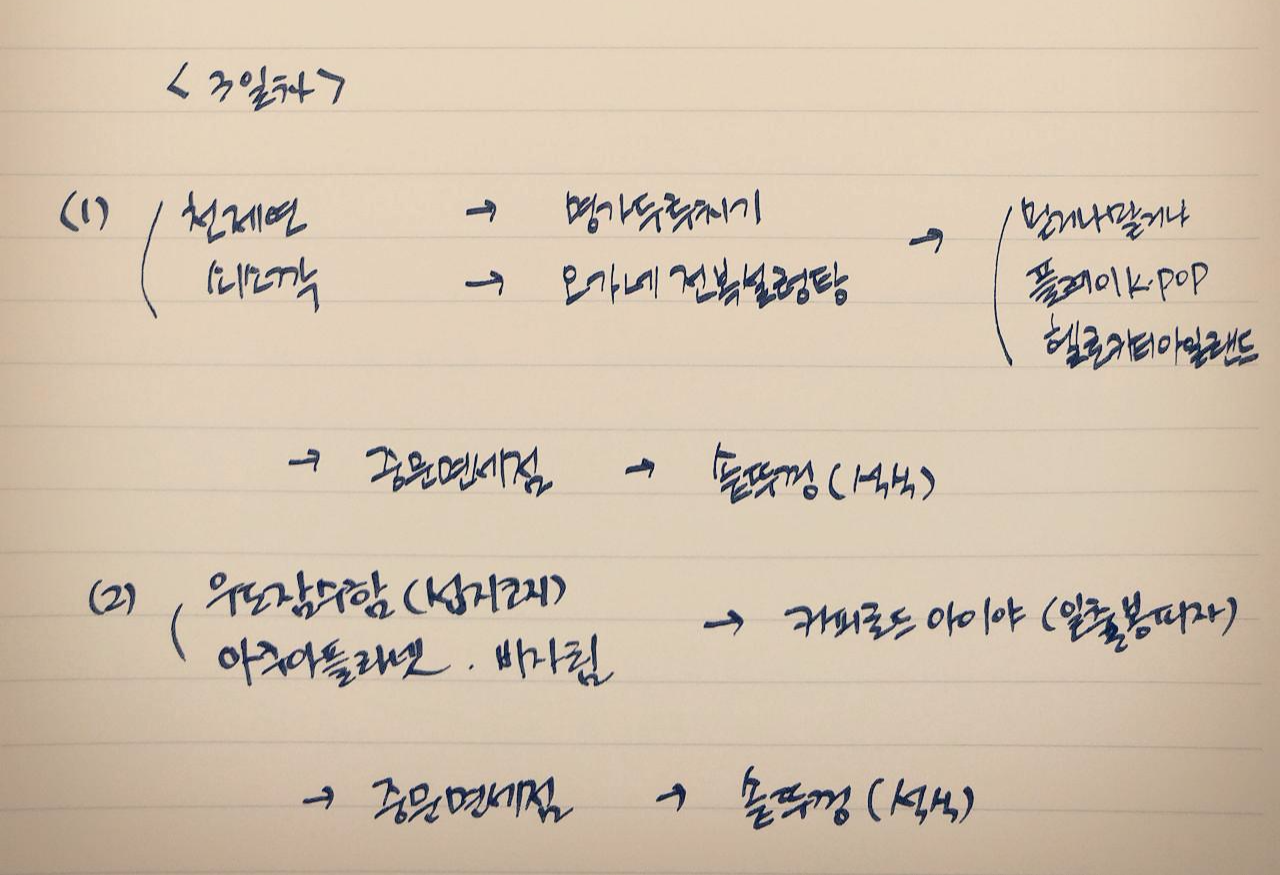 < 3일차 >
(1) 천제연 → 명가두루치기 → 믿거나말거나
쇠소깍 → 오가네 전복설렁탕 플레이 K·POP
헬로키티아일랜드
→ 중문면세점 → 솥뚜껑 (석식)
(2) 우도잠수함 (섭지코지) → 커피로드 아이야 (일출봉피자)
아쿠아플라넷 · 비자림
→ 중문면세점 → 솥뚜껑 (석식)